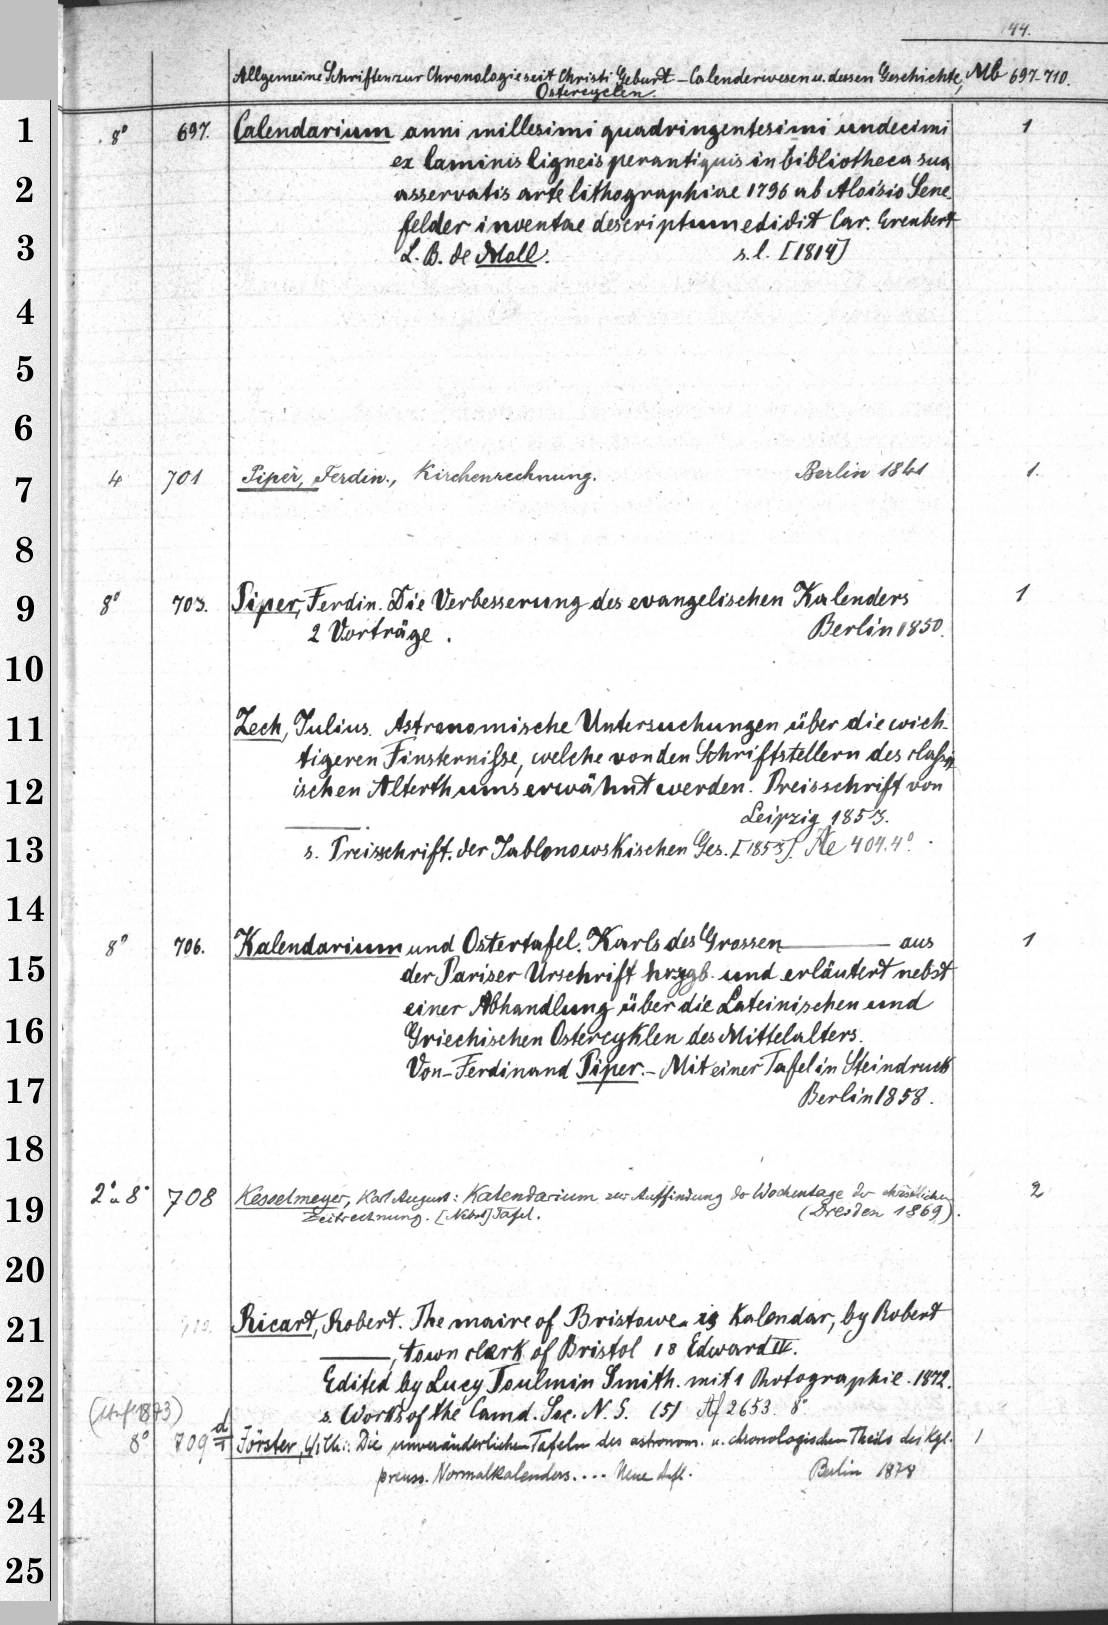 44.
Allgemeine Schriften zur Chronologie seit Christi Geburt – Calenderwesen u. dessen Geschichte, Mb 697-710.
Ostercyclen.
1
8° 697. Calendarium anni millesimi quadringentesimi undecimi 1
ex laminis ligneis perantiquis in bibliotheca sua
2
asservatis arte lithographiae 1796 ab Aloisio Sene
felder inventae descriptum edidit Car. Erenbert
3
L. B. de Moll. s. l. [1814]
4
5
6
7
4 701 Piper, Ferdin., Kirchenrechnung. Berlin 1841 1.
8
9
8° 703. Piper, Ferdin. Die Verbesserung des evangelischen Kalenders 1
2 Vorträge. Berlin 1850.
10
11
Zech, Julius. Astronomische Untersuchungen über die wich-
tigeren Finsternisse, welche von den Schriftstellern des
12
ischen Alterthums erwähnt werden. Preisschrift von
Leipzig 1853.
13
s. Preisschrift. der Jablonowskischen Ges. [1853]. Ae 404. 4°.
14
8° 706. Kalendarium und Ostertafel. Karls des Grossen——— aus 1
15
der Pariser Urschrift hrsgb. und erläutert nebst
einer Abhandlung über die Lateinischen und
16
Griechischen Ostercyklen des Mittelalters.
Von – Ferdinand Piper. – Mit einer Tafel in Steindruck
17
Berlin 1858.
18
19
2° u 8° 708 Kesselmeyer, Karl August: Kalendarium zur Auffindung der Wochentage der christlichen 2
Zeitrechnung. [Nebst] Tafel. (Dresden 1869).
20
21
Ricart, Robert. The maire of Bristowe is Kalendar, by Robert
———, town clerk of Bristol 18 Edward IV.
22
Edited by Lucy Toulmin Smith. mit 1 Photographie. 1872.
s. Works of the Camd. Soc. N. S. (5) Af 2653. 8°
23
8° 709 Förster, W.: Die unveränderlichen Tafeln des astronom. u. chronologischen Theils des Kgl. 1
preuss. Normalkalenders. ... Neue Aufl. Berlin 1878
24
25